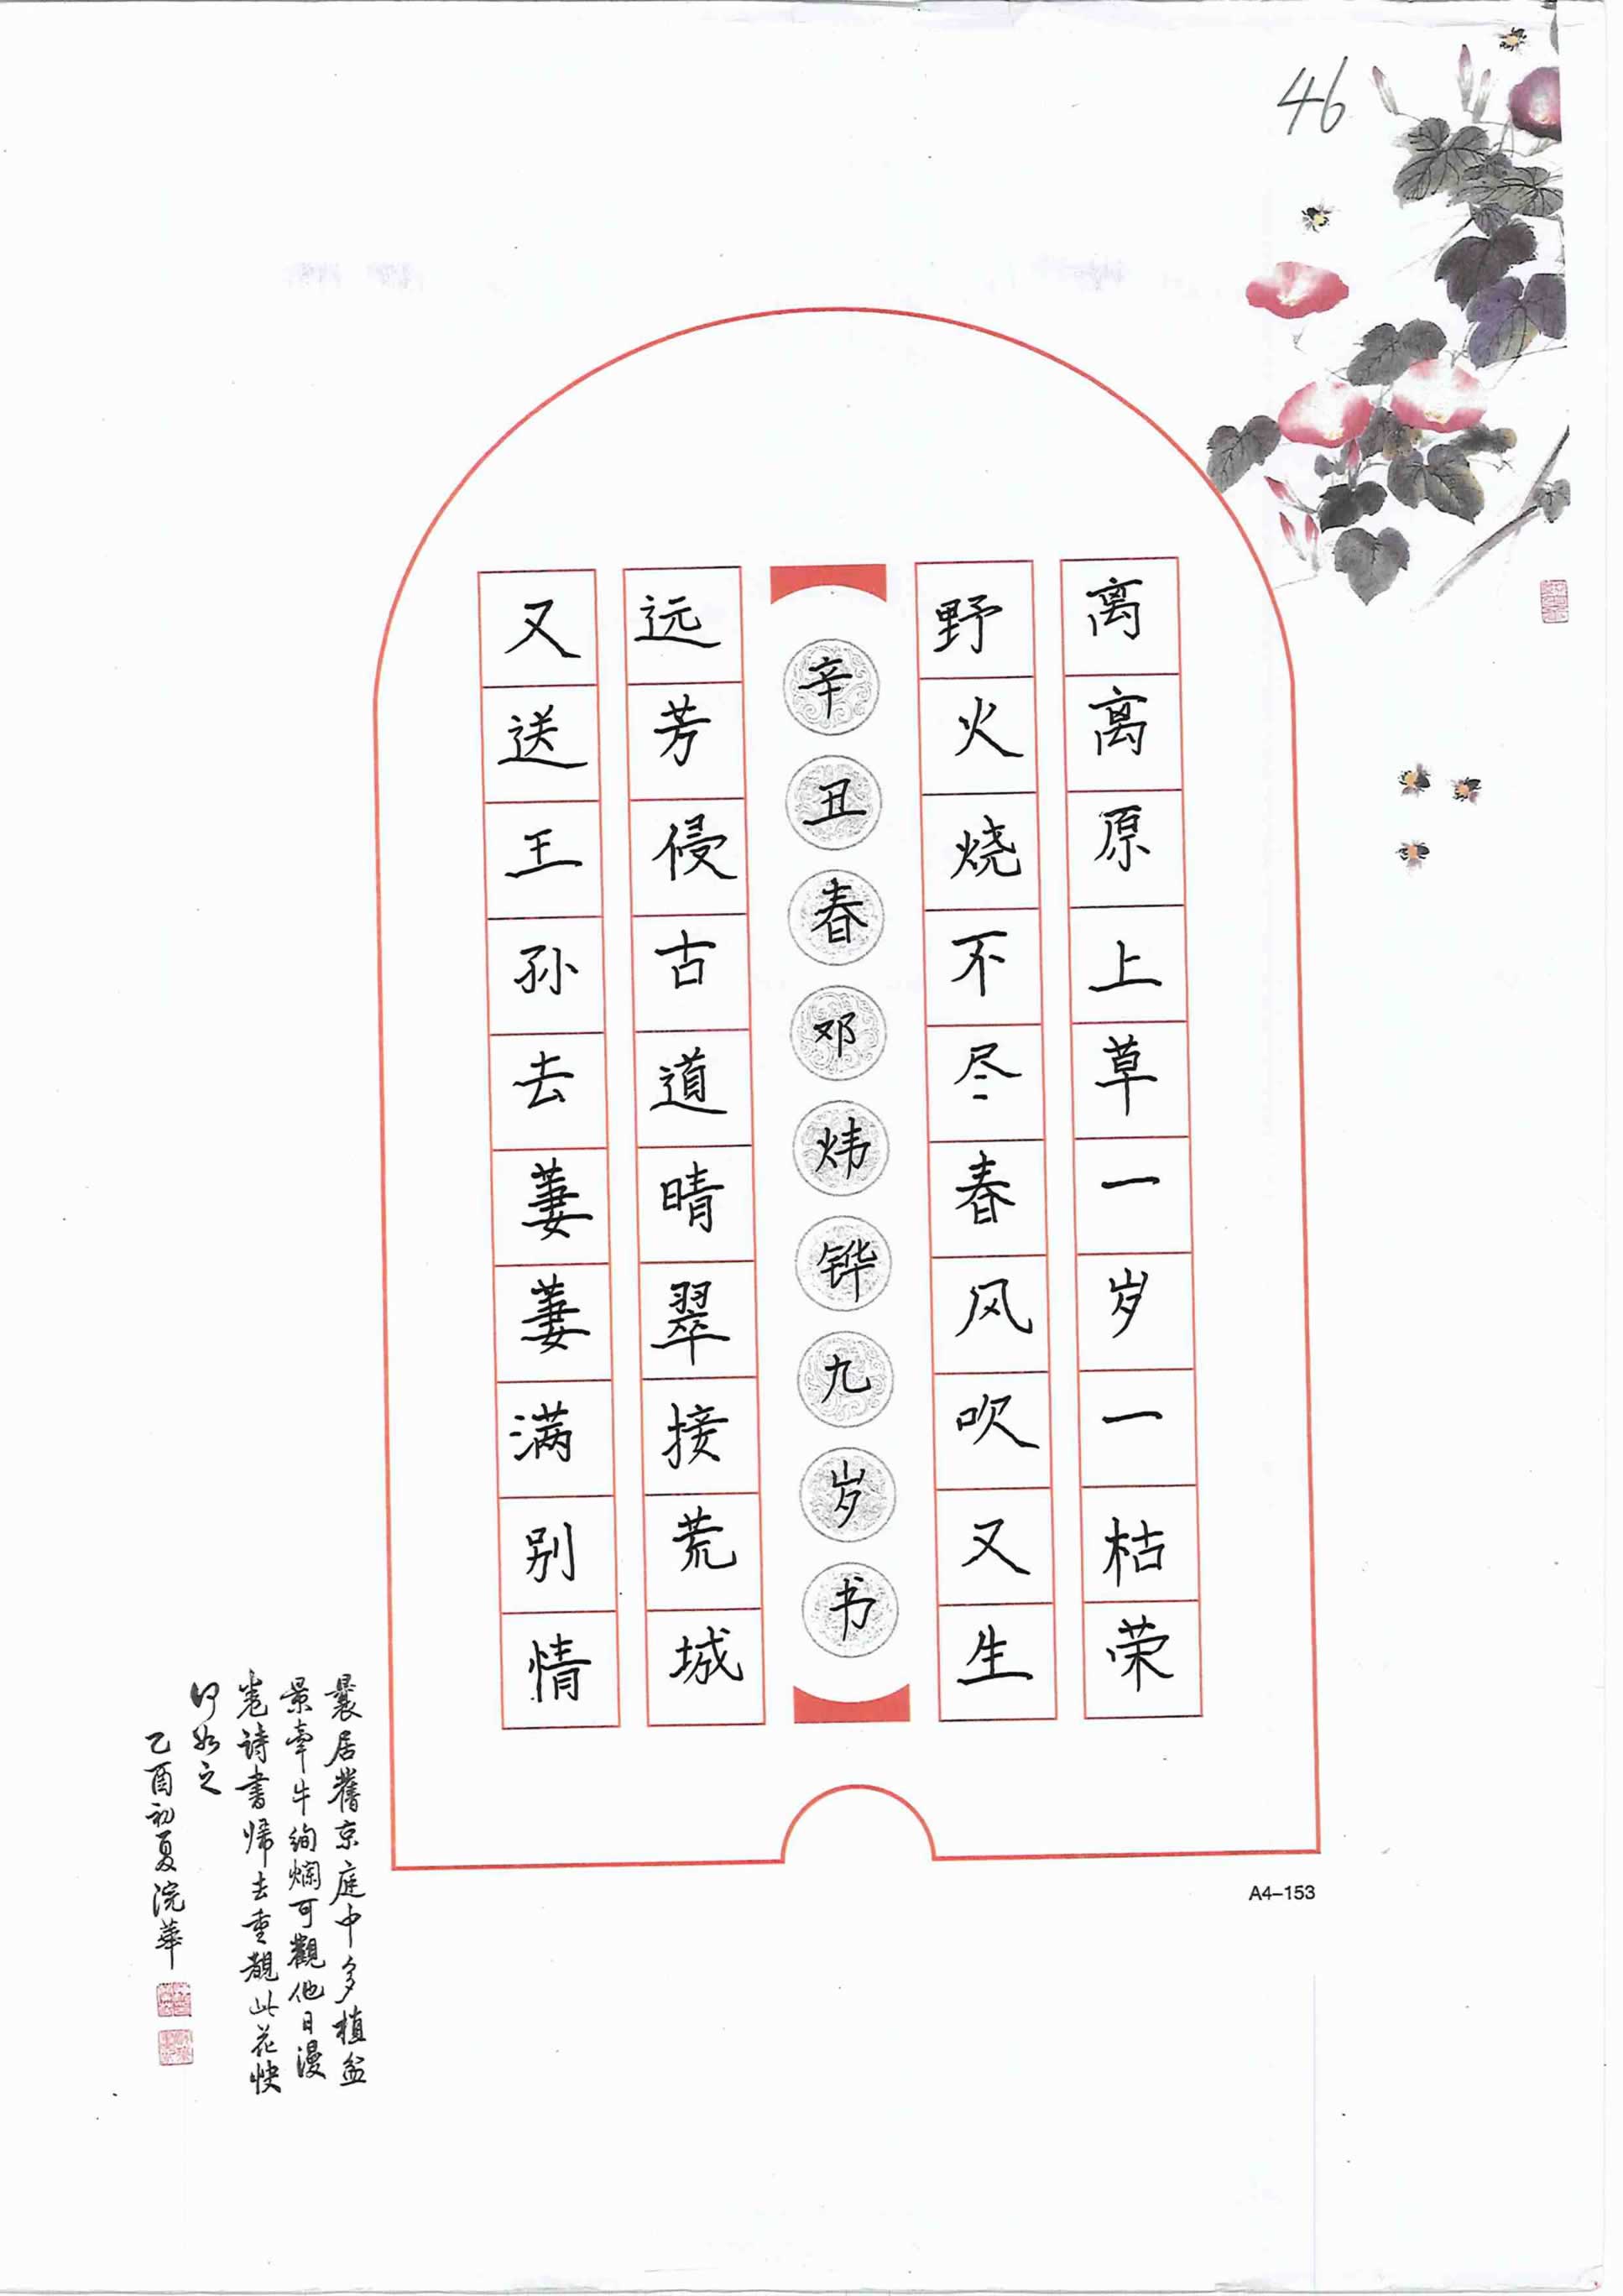 46
离离原上草一岁一枯荣
野火烧不尽春风吹又生
辛丑春邓炜铧九岁书
远芳侵古道晴翠接荒城
又送王孙去萋萋满别情
A4-153
曩居舊京庭中多植盆
景牽牛絢爛可觀他日漫
卷詩書歸去重覩此花快
何如之
乙酉初夏浣華